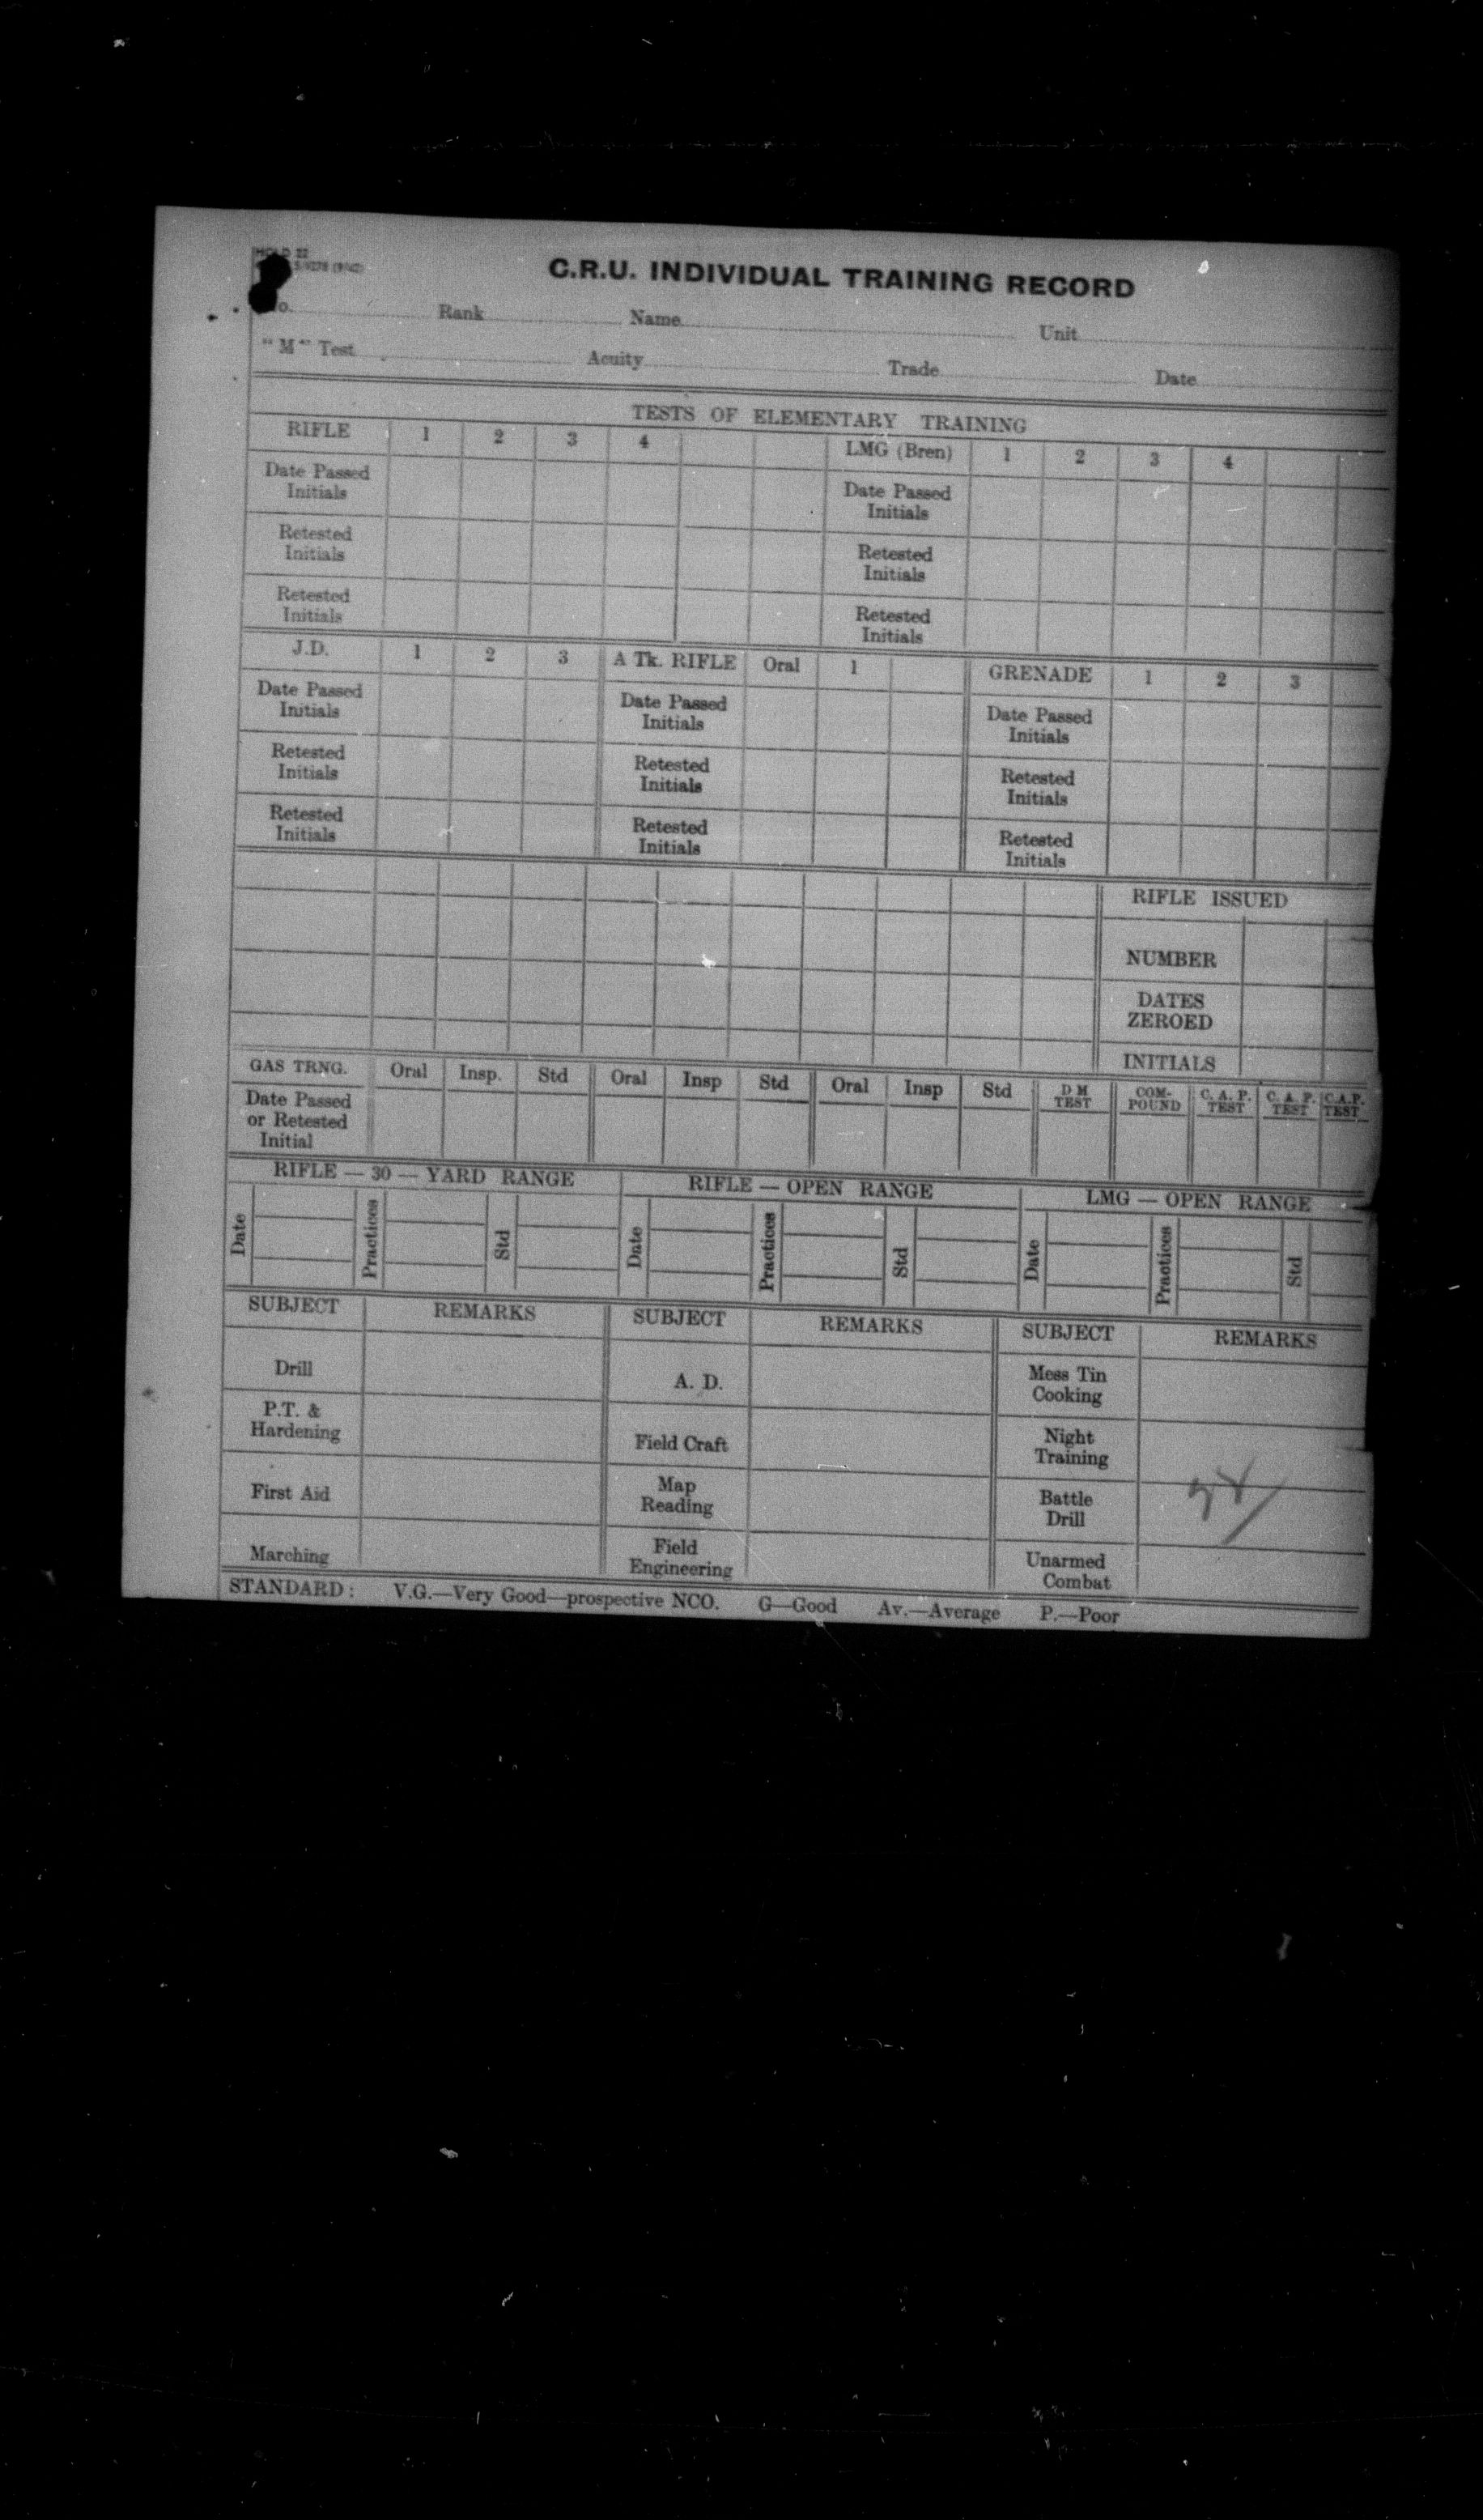 HOLD 22
C.R.U. INDIVIDUAL TRAINING RECORD
Rank Name Unit
"M" Test Acuity Trade Date
TESTS OF ELEMENTARY TRAINING
RIFLE 1 2 3 4 LMG (Bren) 1 2 3 4
Date Passed Initials Date Passed Initials
Retested Initials Retested Initials
Retested Initials Retested Initials
J.D. 1 2 3 A Tk. RIFLE Oral 1 GRENADE 1 2 3
Date Passed Initials Date Passed Initials Date Passed Initials
Retested Initials Retested Initials Retested Initials
Retested Initials Retested Initials Retested Initials
RIFLE ISSUED
NUMBER
DATES ZEROED
INITIALS
GAS TRNG. Oral Insp. Std Oral Insp Std Oral Insp Std D M TEST COM-POUND C. A. P. TEST C. A. P. TEST C.A.P. TEST
Date Passed or Retested Initial
RIFLE — 30 — YARD RANGE RIFLE — OPEN RANGE LMG — OPEN RANGE
Date Practices Std Date Practices Std Date Practices Std
SUBJECT REMARKS SUBJECT REMARKS SUBJECT REMARKS
Drill A. D. Mess Tin Cooking
P.T. & Hardening Field Craft Night Training
First Aid Map Reading Battle Drill
Marching Field Engineering Unarmed Combat
STANDARD: V.G.—Very Good—prospective NCO. G—Good Av.—Average P.—Poor